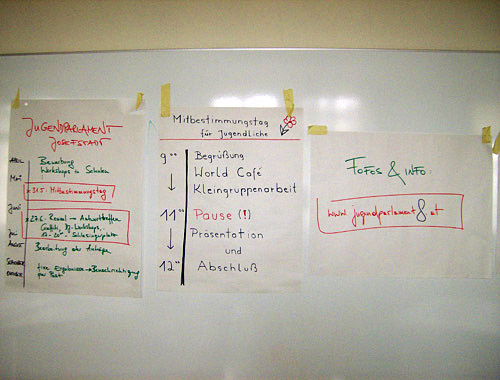 JUGENDPARLAMENT
JOSEFSTADT
APRIL Bewerbung
Workshops in Schulen
Mai
31.5. Mitbestimmungstag
Juni
27.6. Reual - Antworttreffen
Graffiti, DJ-Workshops,
Juli 17-20°° Schlesingerplatz
August Bearbeitung der Anträge
September
Oktober fixe Ergebnisse → Benachrichtigung
per Post
Mitbestimmungstag
für Jugendliche
9°° Begrüßung
World Café
Kleingruppenarbeit
11°° Pause (!)
Präsentation
und
12°° Abschluß
FOTOS & INFO:
www.jugendparlament8.at